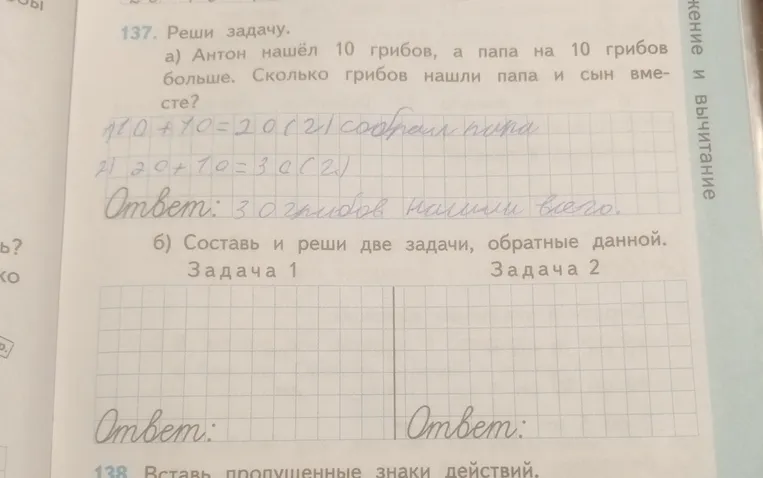 137. Реши задачу.
а) Антон нашёл 10 грибов, а папа на 10 грибов
больше. Сколько грибов нашли папа и сын вме-
сте?
1) 10 + 10 = 20 (г) собрал папа
2) 20 + 10 = 30 (г)
Ответ: 30 грибов нашли всего.
б) Составь и реши две задачи, обратные данной.
Задача 1 Задача 2
Ответ: Ответ:
138. Вставь пропущенные знаки действий.
жение и вычитание
ь?
ко